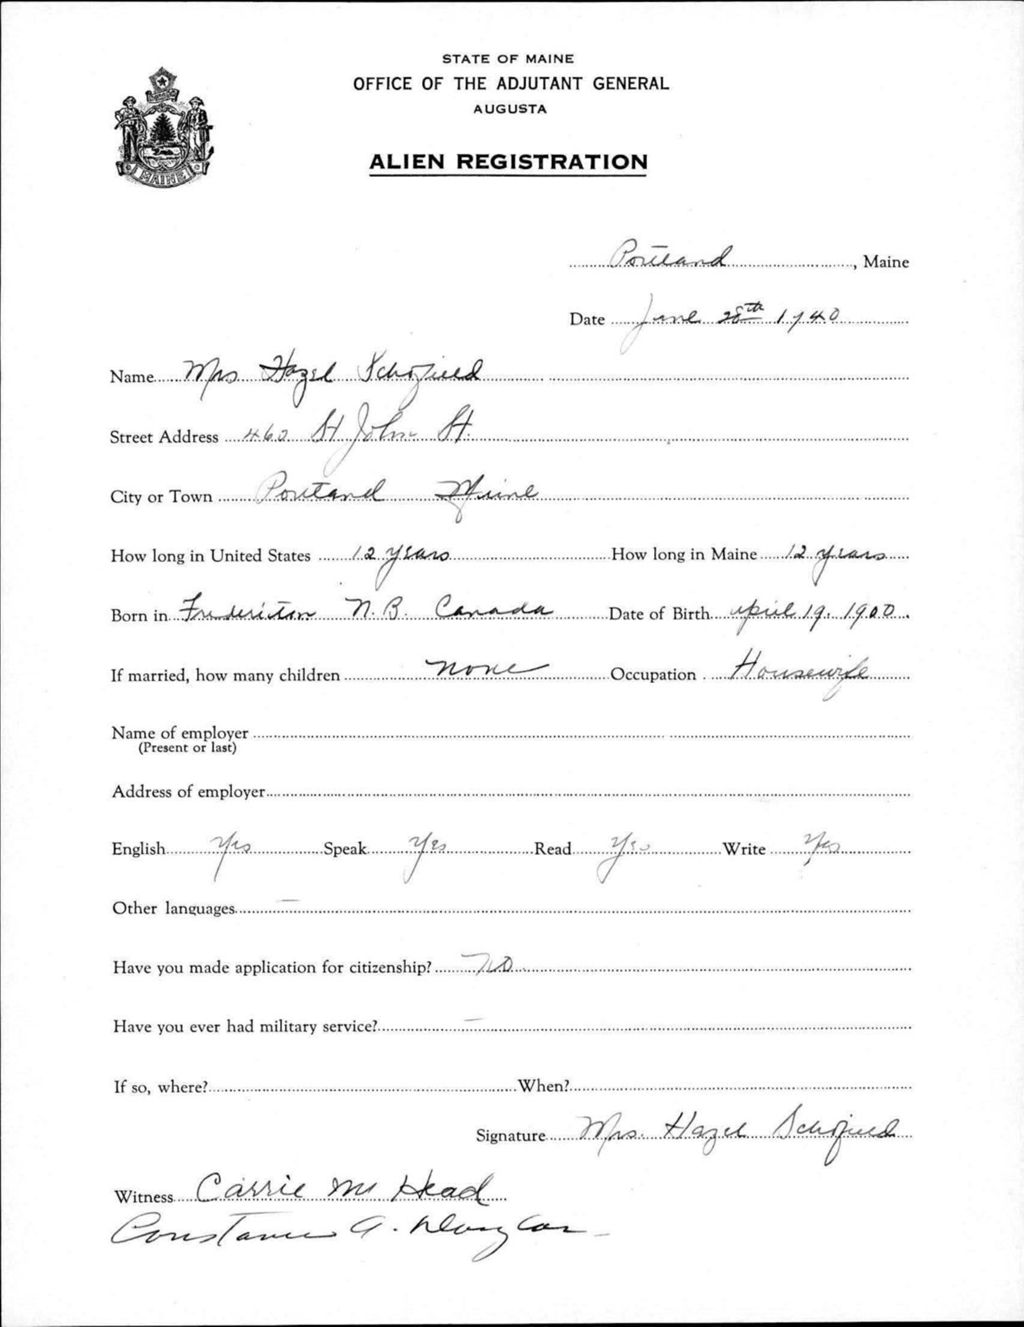 STATE OF MAINE
OFFICE OF THE ADJUTANT GENERAL
AUGUSTA
ALIEN REGISTRATION
MAINE
Portland, Maine
Date June 28th 1940
Name Mrs Hazel Schofield
Street Address 460 St John St.
City or Town Portland Maine
How long in United States 12 years How long in Maine 12 years
Born in Fredericton N.B. Canada Date of Birth April 19, 1900.
If married, how many children none Occupation Housewife
Name of employer
(Present or last)
Address of employer
English Yes Speak Yes Read Yes Write Yes
Other languages —
Have you made application for citizenship? no
Have you ever had military service? —
If so, where? When?
Signature Mrs. Hazel Schofield
Witness Carrie M Head
Constance A.